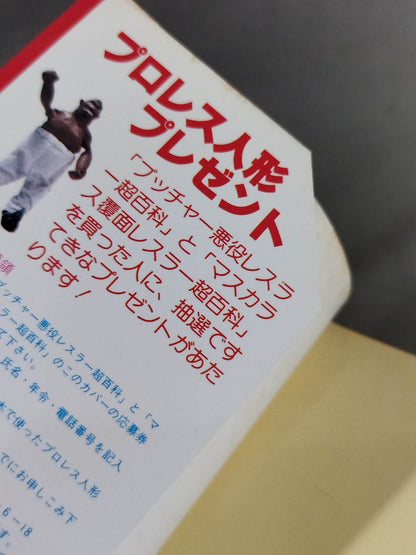 プロレス人形
プレゼント
「ブッチャー悪役レスラ
ー超百科」と「マスカラ
ス覆面レスラー超百科」
を買った人に、抽選です
てきなプレゼントがあた
ります！
領
ブッチャー悪役レスラー超百科」と「マ
スラー超百科」のこのカバーの応募券
て下さい。
氏名・年令・電話番号を記入
本で使ったプロレス人形
でにお申しこみ下
6-18
す。